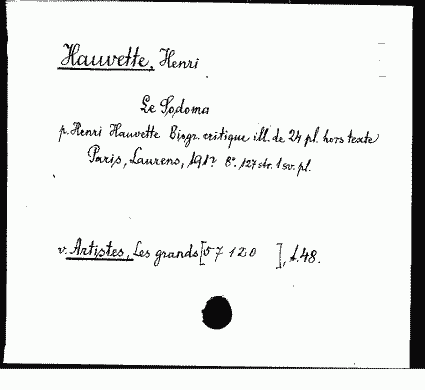 Hauvette, Henri
Le Sodoma
p. Henri Hauvette Biogr. critique ill. de 24 pl. hors texte
Paris, Laurens, 1912 8°. 127 str. 1 sv. pl.
v. Artistes, Les grands [57120 ], t. 48.